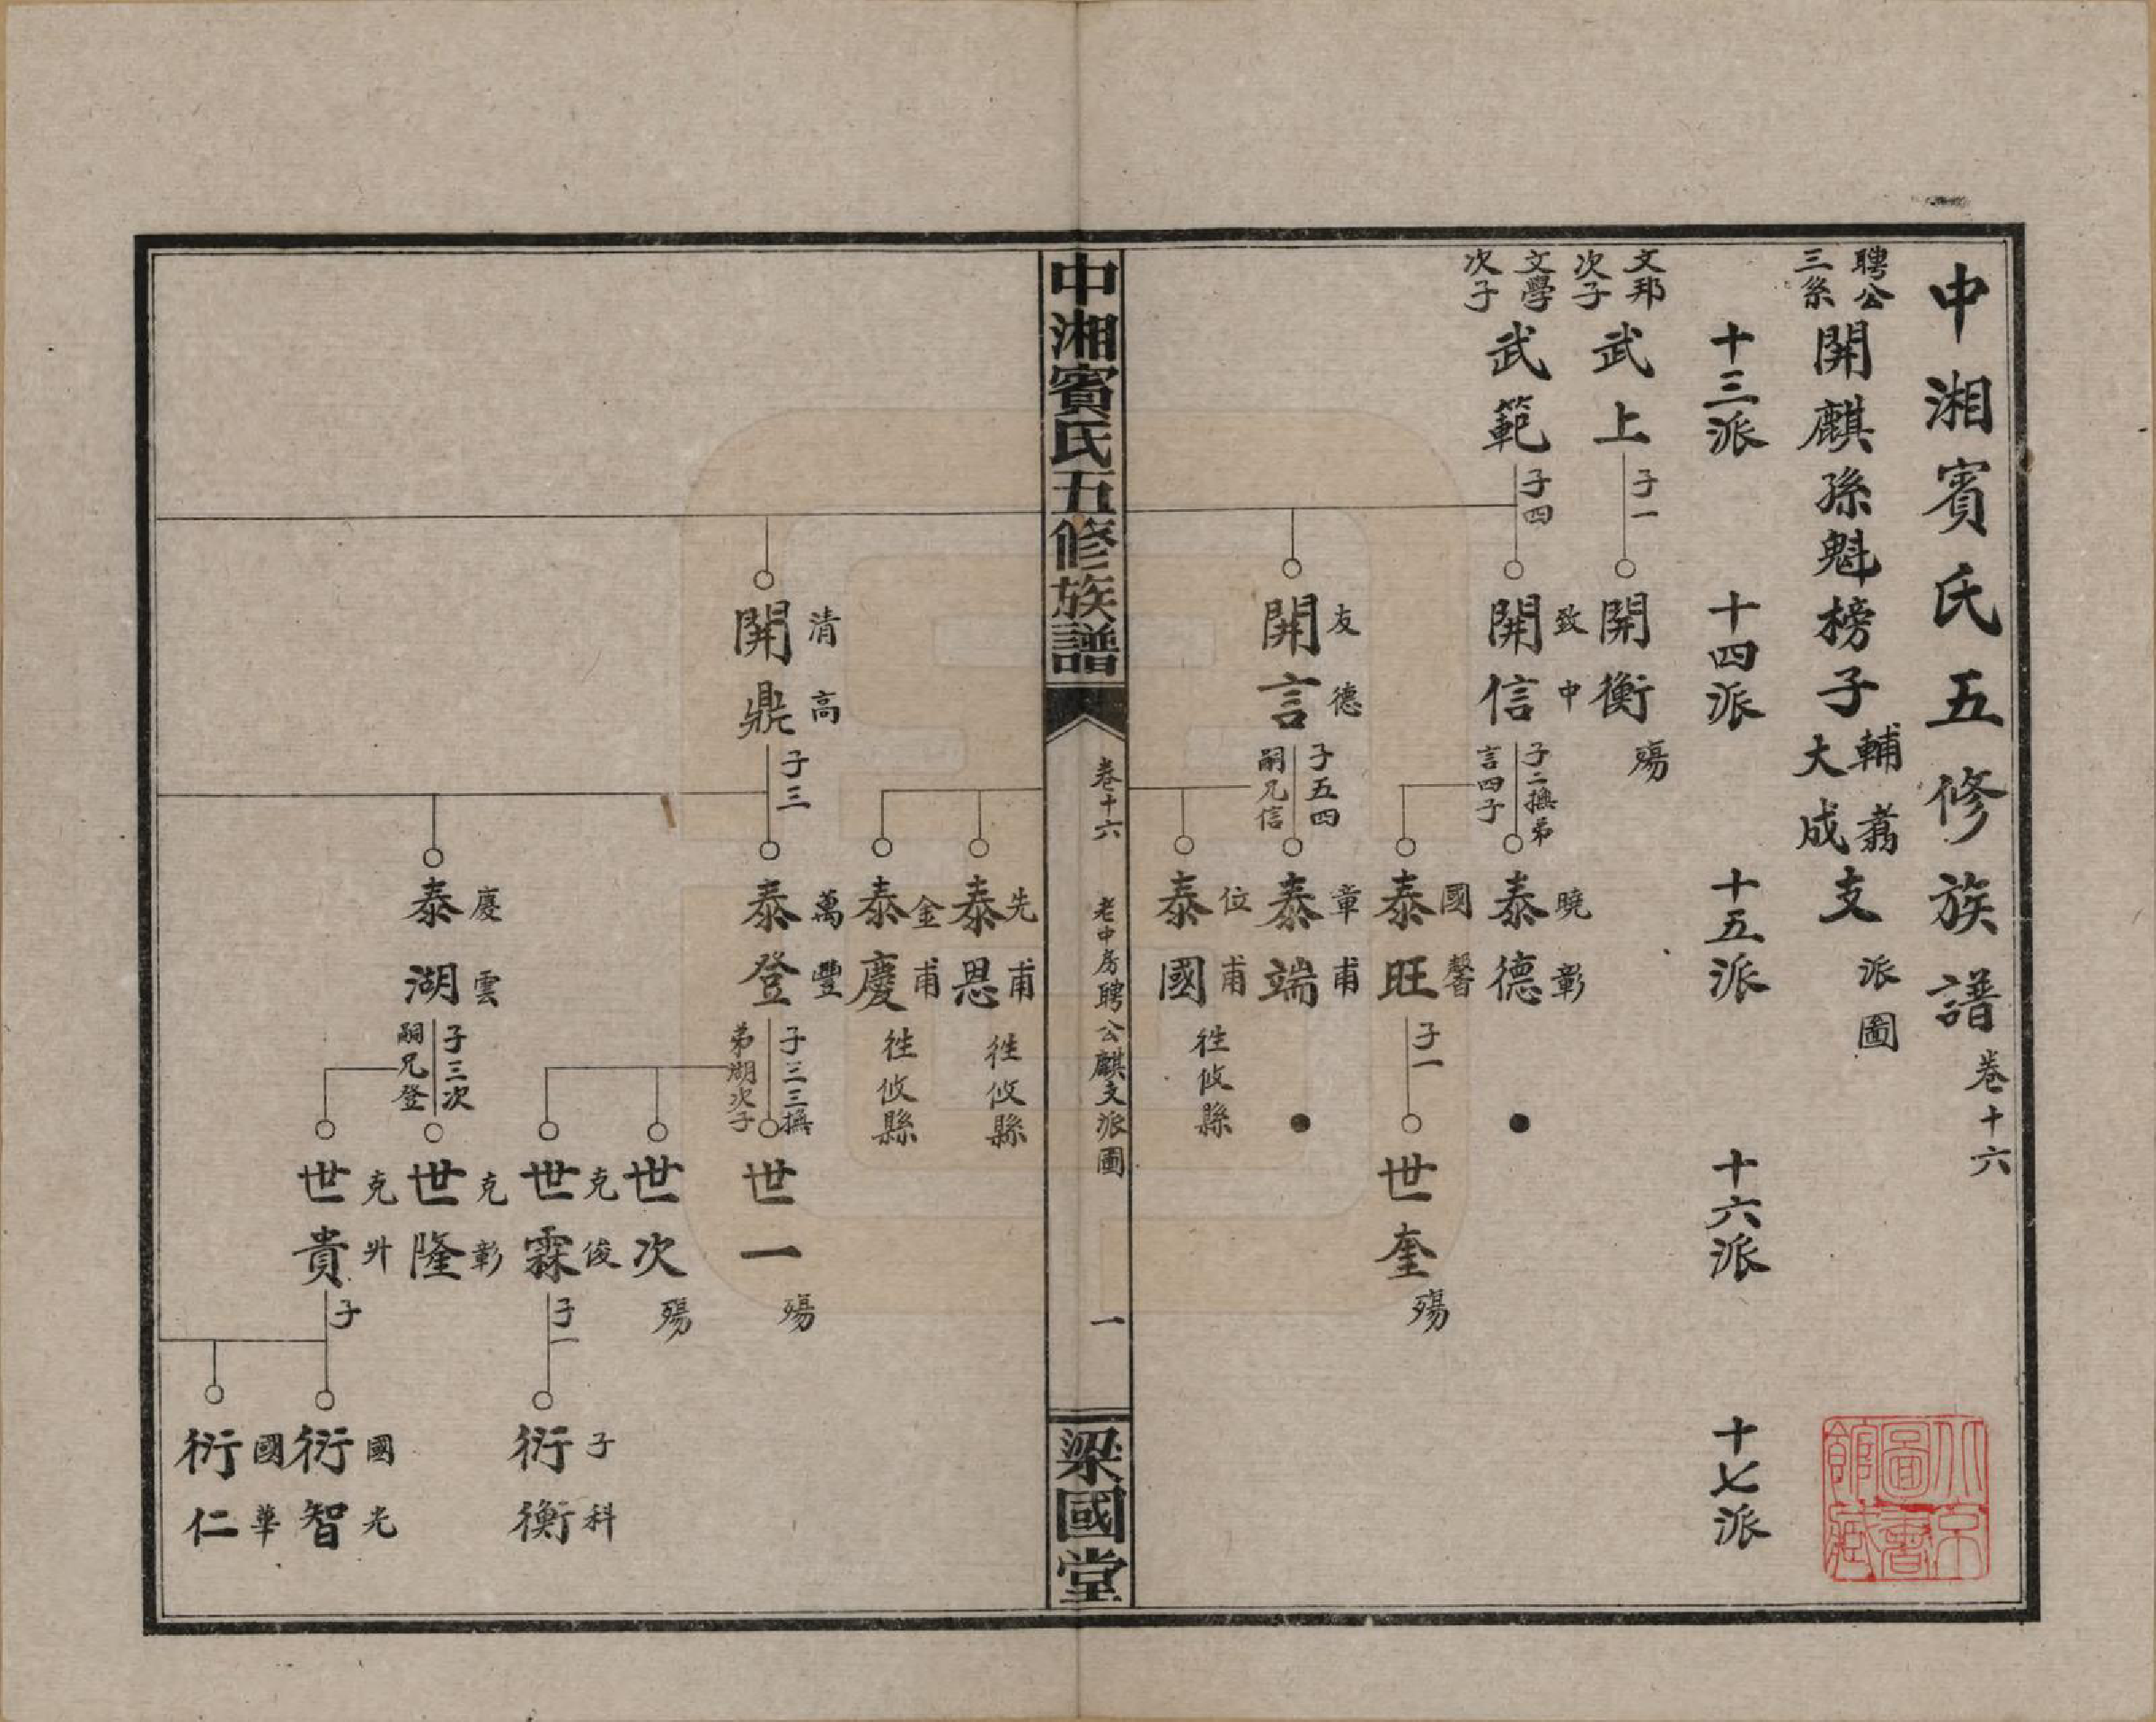 中湘賓氏五修族譜卷十六
聘公三系開麒孫魁榜子輔翥大成支派圖
十三派
十四派
十五派
十六派
十七派
文邦次子
武上
子一
開衡
殤
文學次子
武範
子四
致中
開信
子二撫弟言四子
曉彰
泰德
國馨
泰旺
子一
世奎
殤
友德
開言
子五四嗣兄信
章甫
泰端
位甫
泰國
徃攸縣
中湘賓氏五修族譜
卷十六
老中房聘公麒支派圖
一
梁國堂
先甫
泰恩
徃攸縣
金甫
泰慶
徃攸縣
清高
開鼎
子三
萬豐
泰登
子三三撫弟湖次子
世一
殤
世次
殤
克俊
世霖
子一
子科
衍衡
慶雲
泰湖
子三次嗣兄登
克彰
世隆
克升
世貴
子
國光
衍智
國華
衍仁
北京圖書館藏